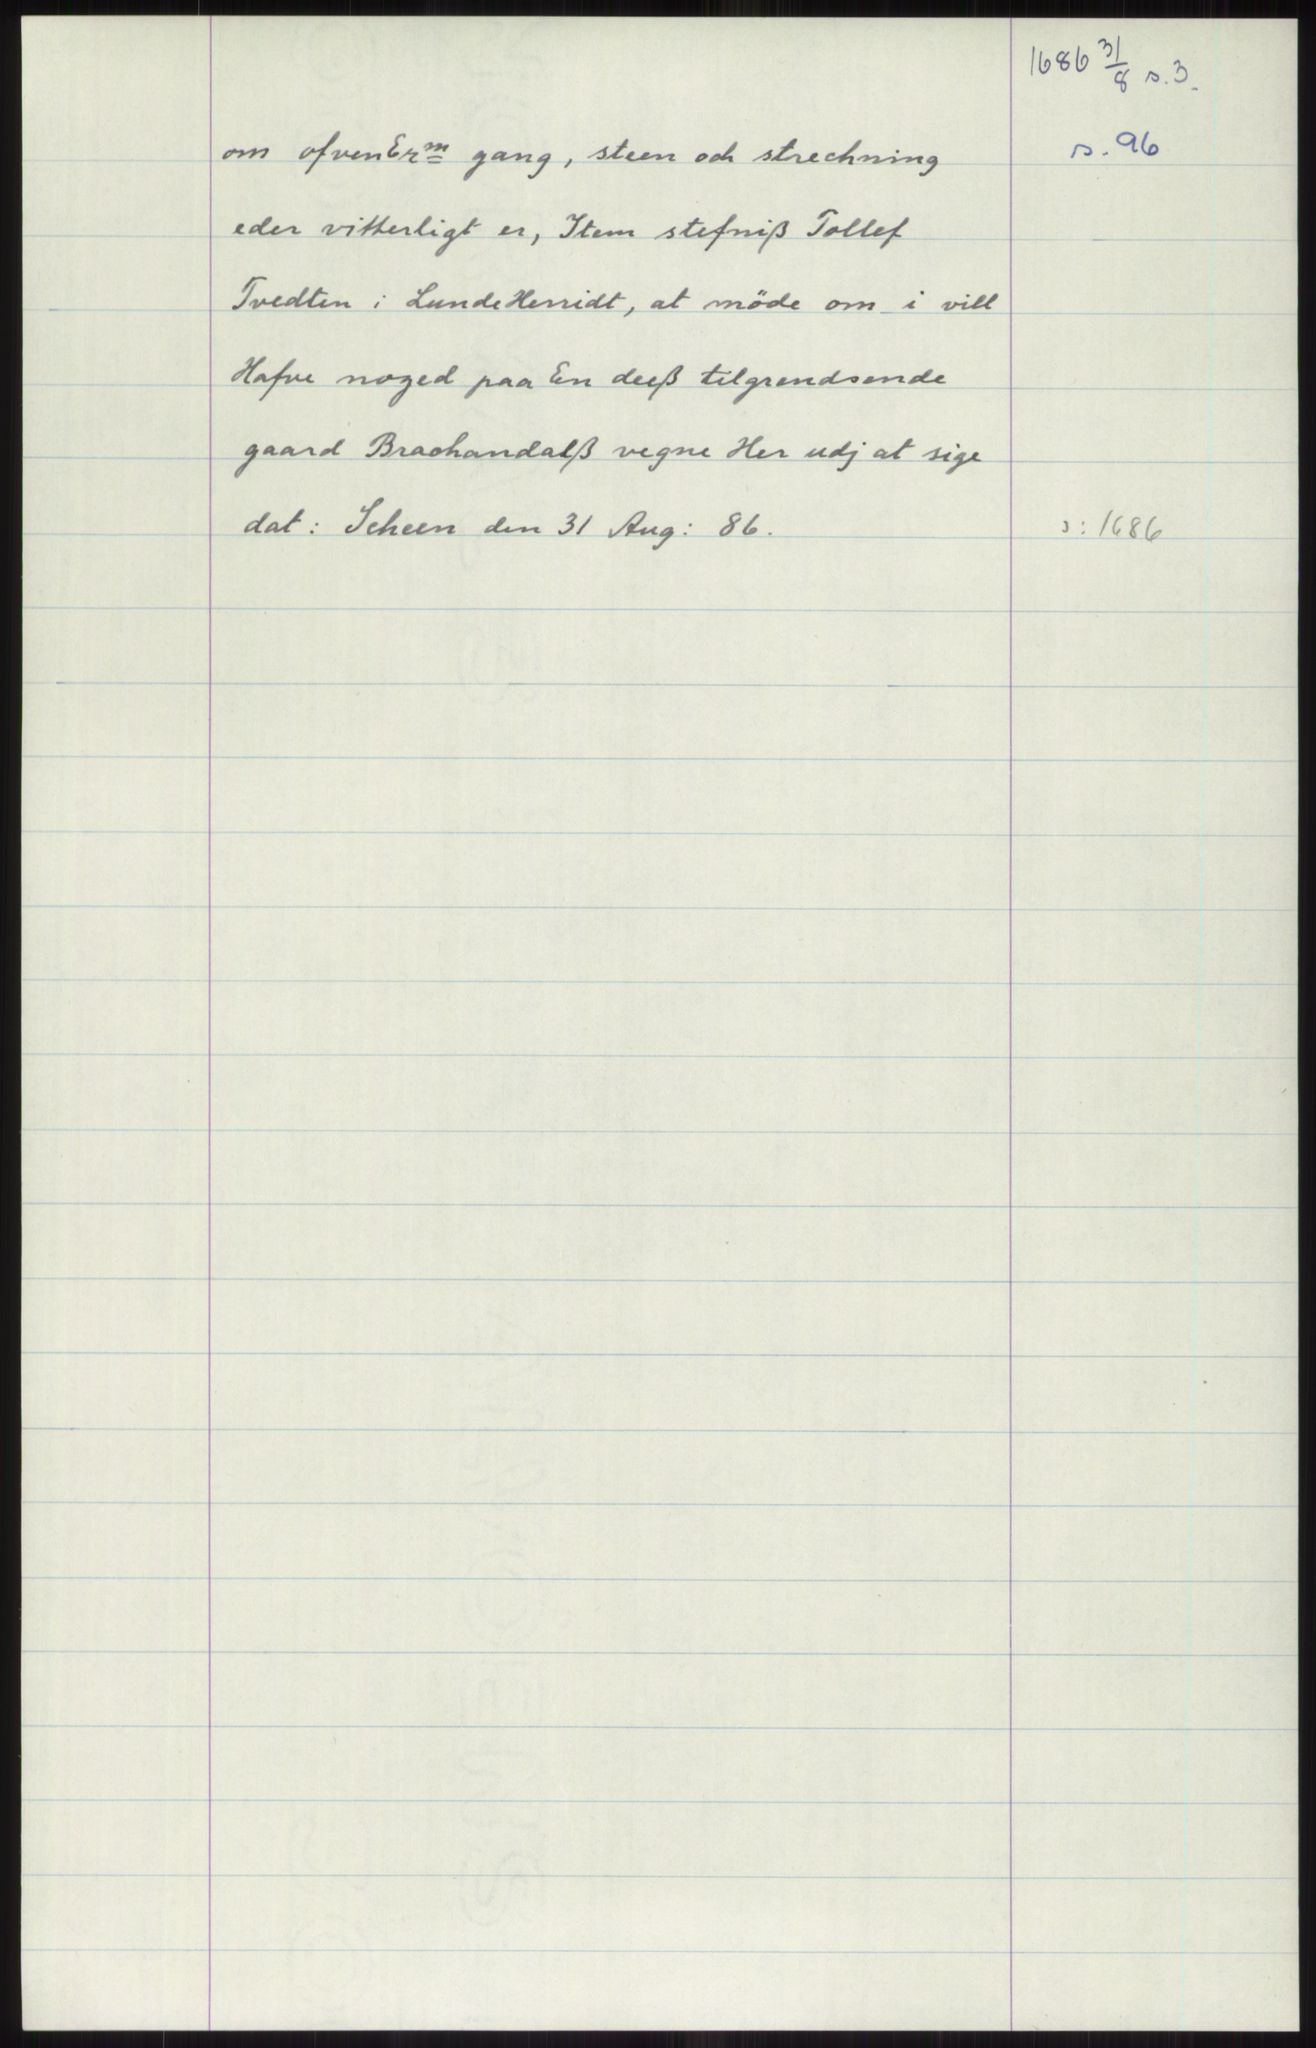 1686 31/8 s. 3.
s. 96
om ofvenErm gang, steen och strechning
eder vitterligt er, Item stefniß Tollef
Tvedten i LundeHerridt, at möde om i vill
Hafve noged paa En deeß tilgrendsende
gaard Braohandalß vegne Her udj at sige
dat: Scheen den 31 Aug: 86.
ɔ: 1686